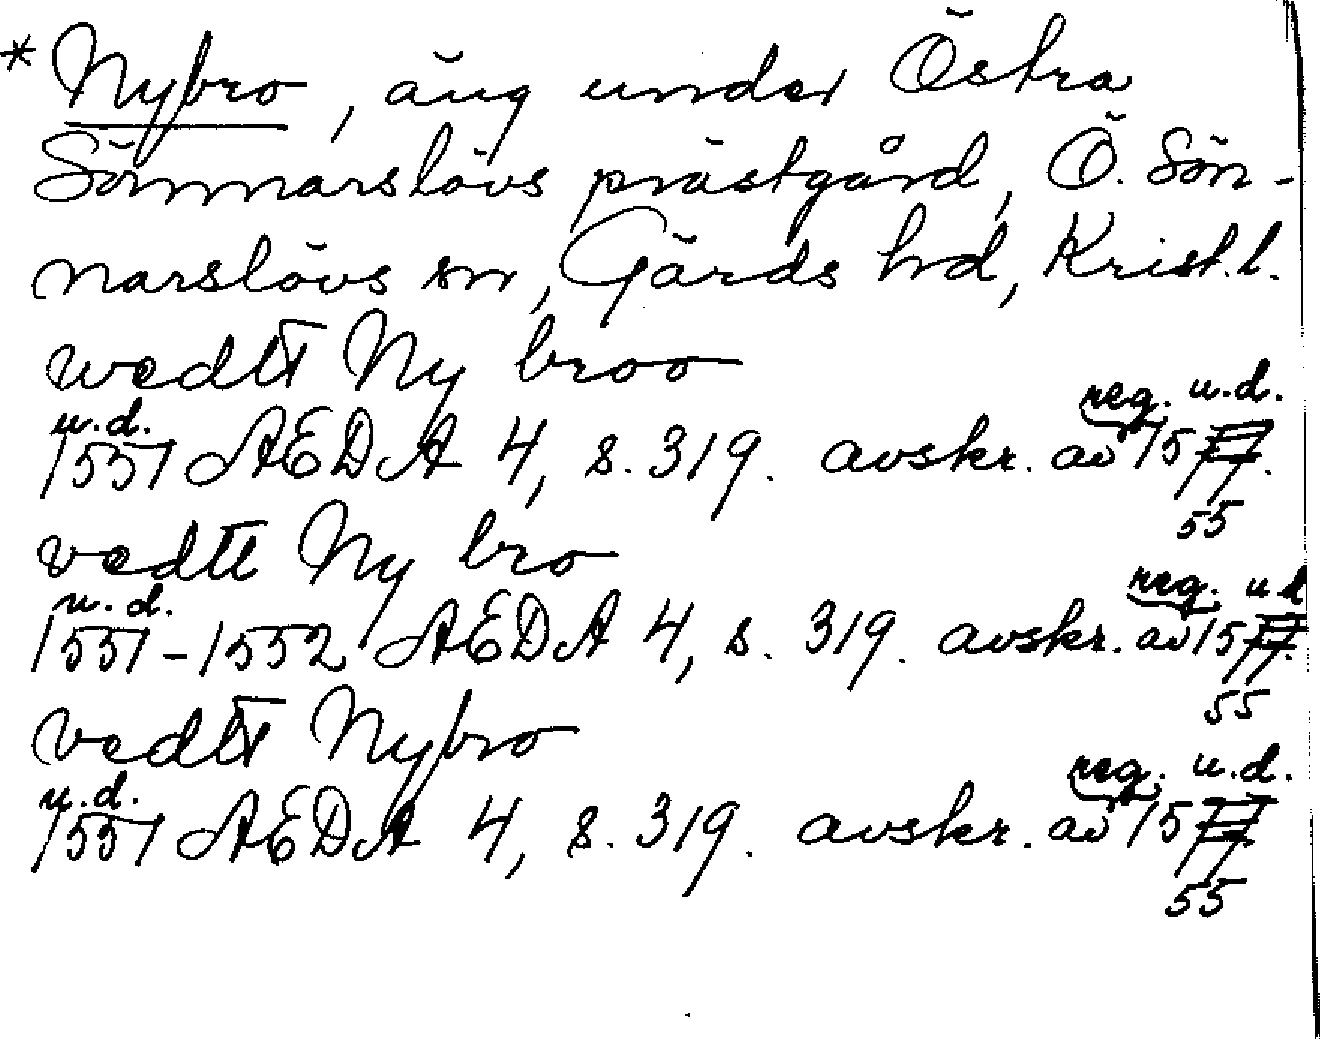 * Nybro, äng under Östra
Sönnarslövs prästgård, Ö. Sön-
narslövs sn, Gärds hd, Krist. l.
wedtt Ny broo
reg. u.d.
u.d.
1551 AEDA 4, s. 319. avskr. av 1577.
55
vedtt Ny bro
reg. u.d
u.d.
1551-1552 AEDA 4, s. 319. avskr. av 1577.
55
vedtt Nybro
reg. u.d.
u.d.
1551 AEDA 4, s. 319. avskr. av 1577.
55